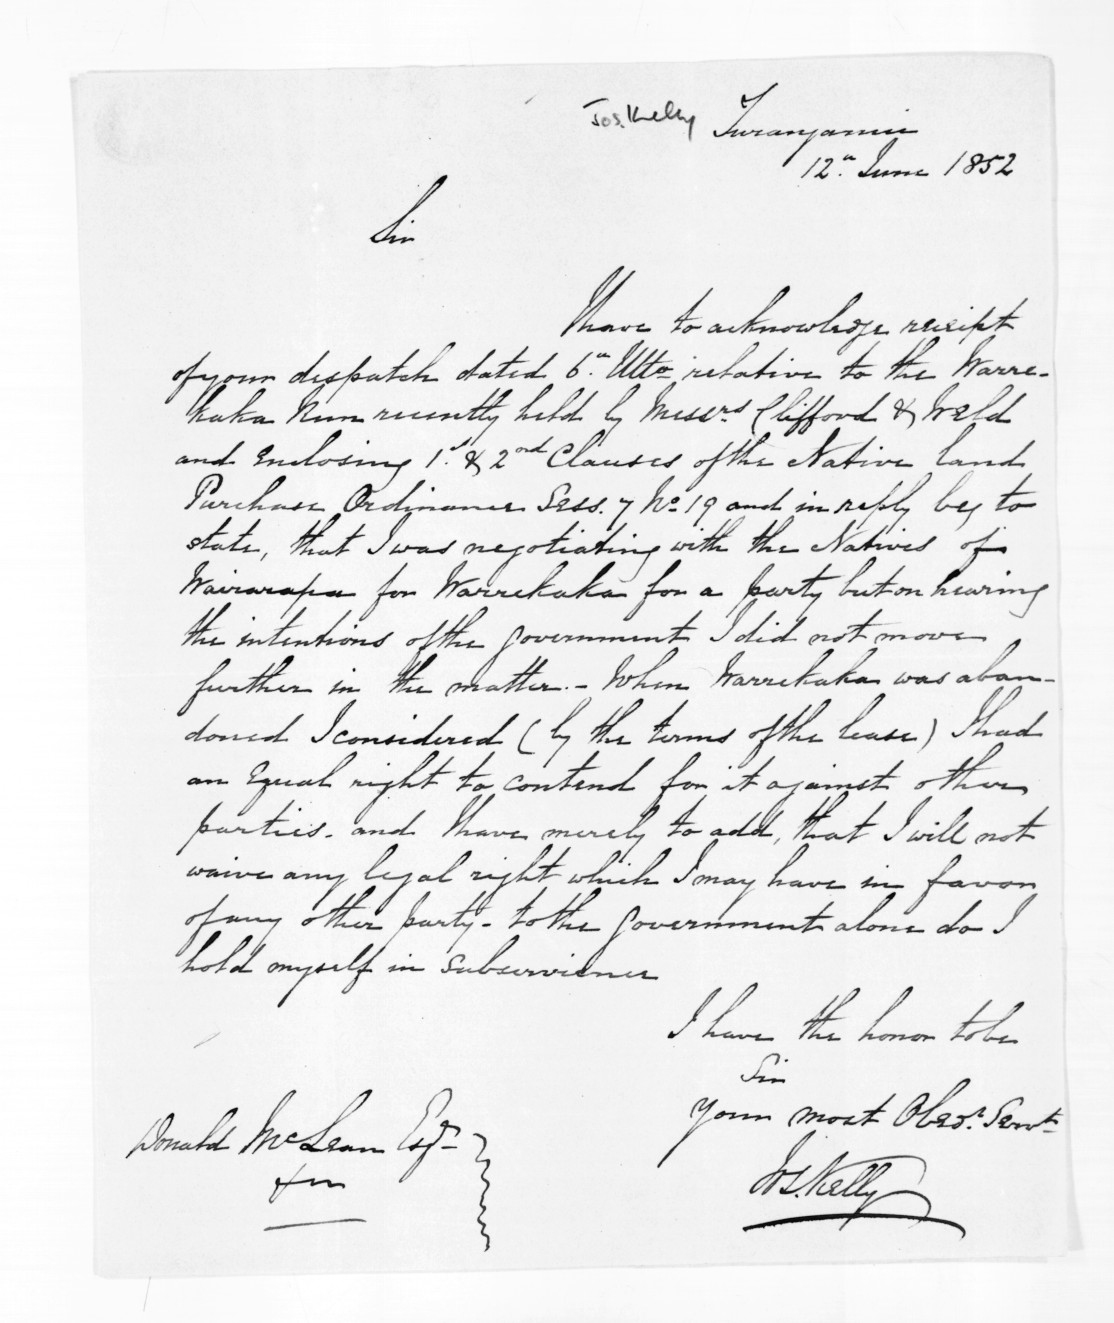 Jos. Kelly
Turanganui
12th June 1852
Sir
I have to acknowledge receipt
of your despatch dated 6th Ulto relative to the Warre-
kaka Run recently held by Messrs Clifford & Weld
and Enclosing 1st & 2nd Clauses of the Native land
Purchase Ordinance Sess. 7 No 19 and in reply beg to
state, that I was negotiating with the Natives of
Wairarapa for Warrekaka for a party but on hearing
the intentions of the Government I did not move
further in the matter. - When Warrekaka was aban-
doned I considered (by the terms of the lease) I had
an Equal right to contend for it against other
parties. and I have merely to add, that I will not
waive any legal right which I may have in favor
of any other party - to the Government alone do I
hold myself in subservience
I have the honor to be
Sir
Your most Obedt. Servt
Donald McLean Esqr
Jos. Kelly